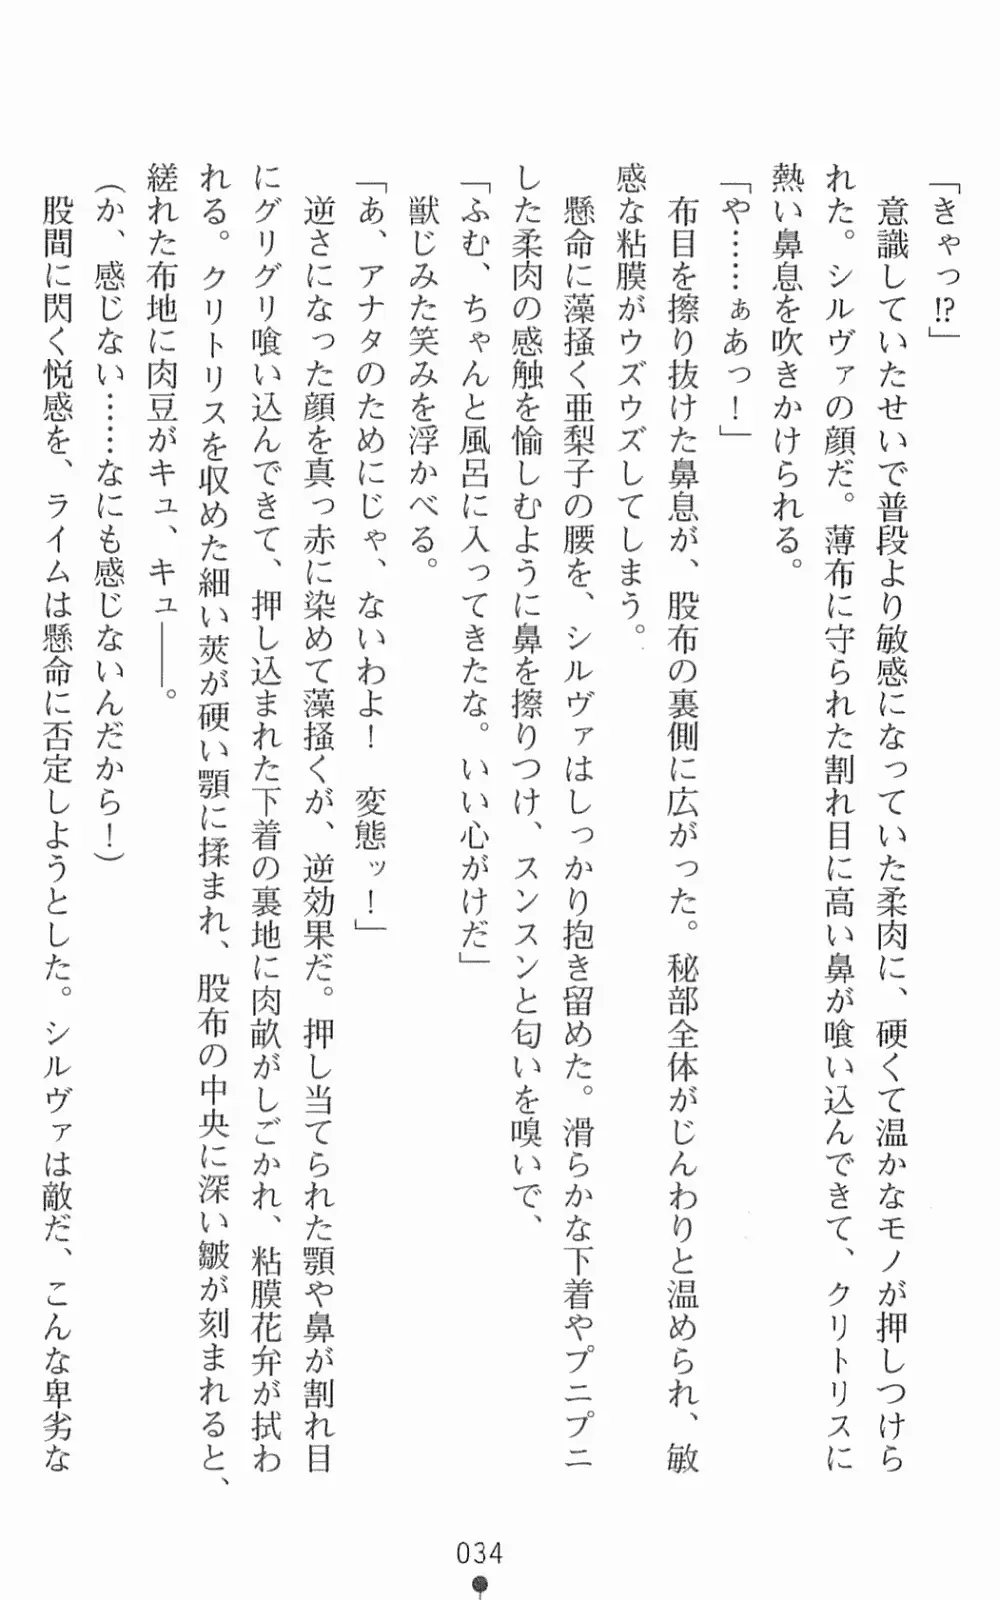 「きゃっ!?」
　意識していたせいで普段より敏感になっていた柔肉に、硬くて温かなモノが押しつけら
れた。シルヴァの顔だ。薄布に守られた割れ目に高い鼻が喰い込んできて、クリトリスに
熱い鼻息を吹きかけられる。
「や……ぁあっ！」
　布目を擦り抜けた鼻息が、股布の裏側に広がった。秘部全体がじんわりと温められ、敏
感な粘膜がウズウズしてしまう。
　懸命に藻掻く亜梨子の腰を、シルヴァはしっかり抱き留めた。滑らかな下着やプニプニ
した柔肉の感触を愉しむように鼻を擦りつけ、スンスンと匂いを嗅いで、
「ふむ、ちゃんと風呂に入ってきたな。いい心がけだ」
　獣じみた笑みを浮かべる。
「あ、アナタのためにじゃ、ないわよ！　変態ッ！」
　逆さになった顔を真っ赤に染めて藻掻くが、逆効果だ。押し当てられた顎や鼻が割れ目
にグリグリ喰い込んできて、押し込まれた下着の裏地に肉畝がしごかれ、粘膜花弁が拭わ
れる。クリトリスを収めた細い莢が硬い顎に揉まれ、股布の中央に深い皺が刻まれると、
縒れた布地に肉豆がキュ、キュ――。
（か、感じない……なにも感じないんだから！）
　股間に閃く悦感を、ライムは懸命に否定しようとした。シルヴァは敵だ、こんな卑劣な
034